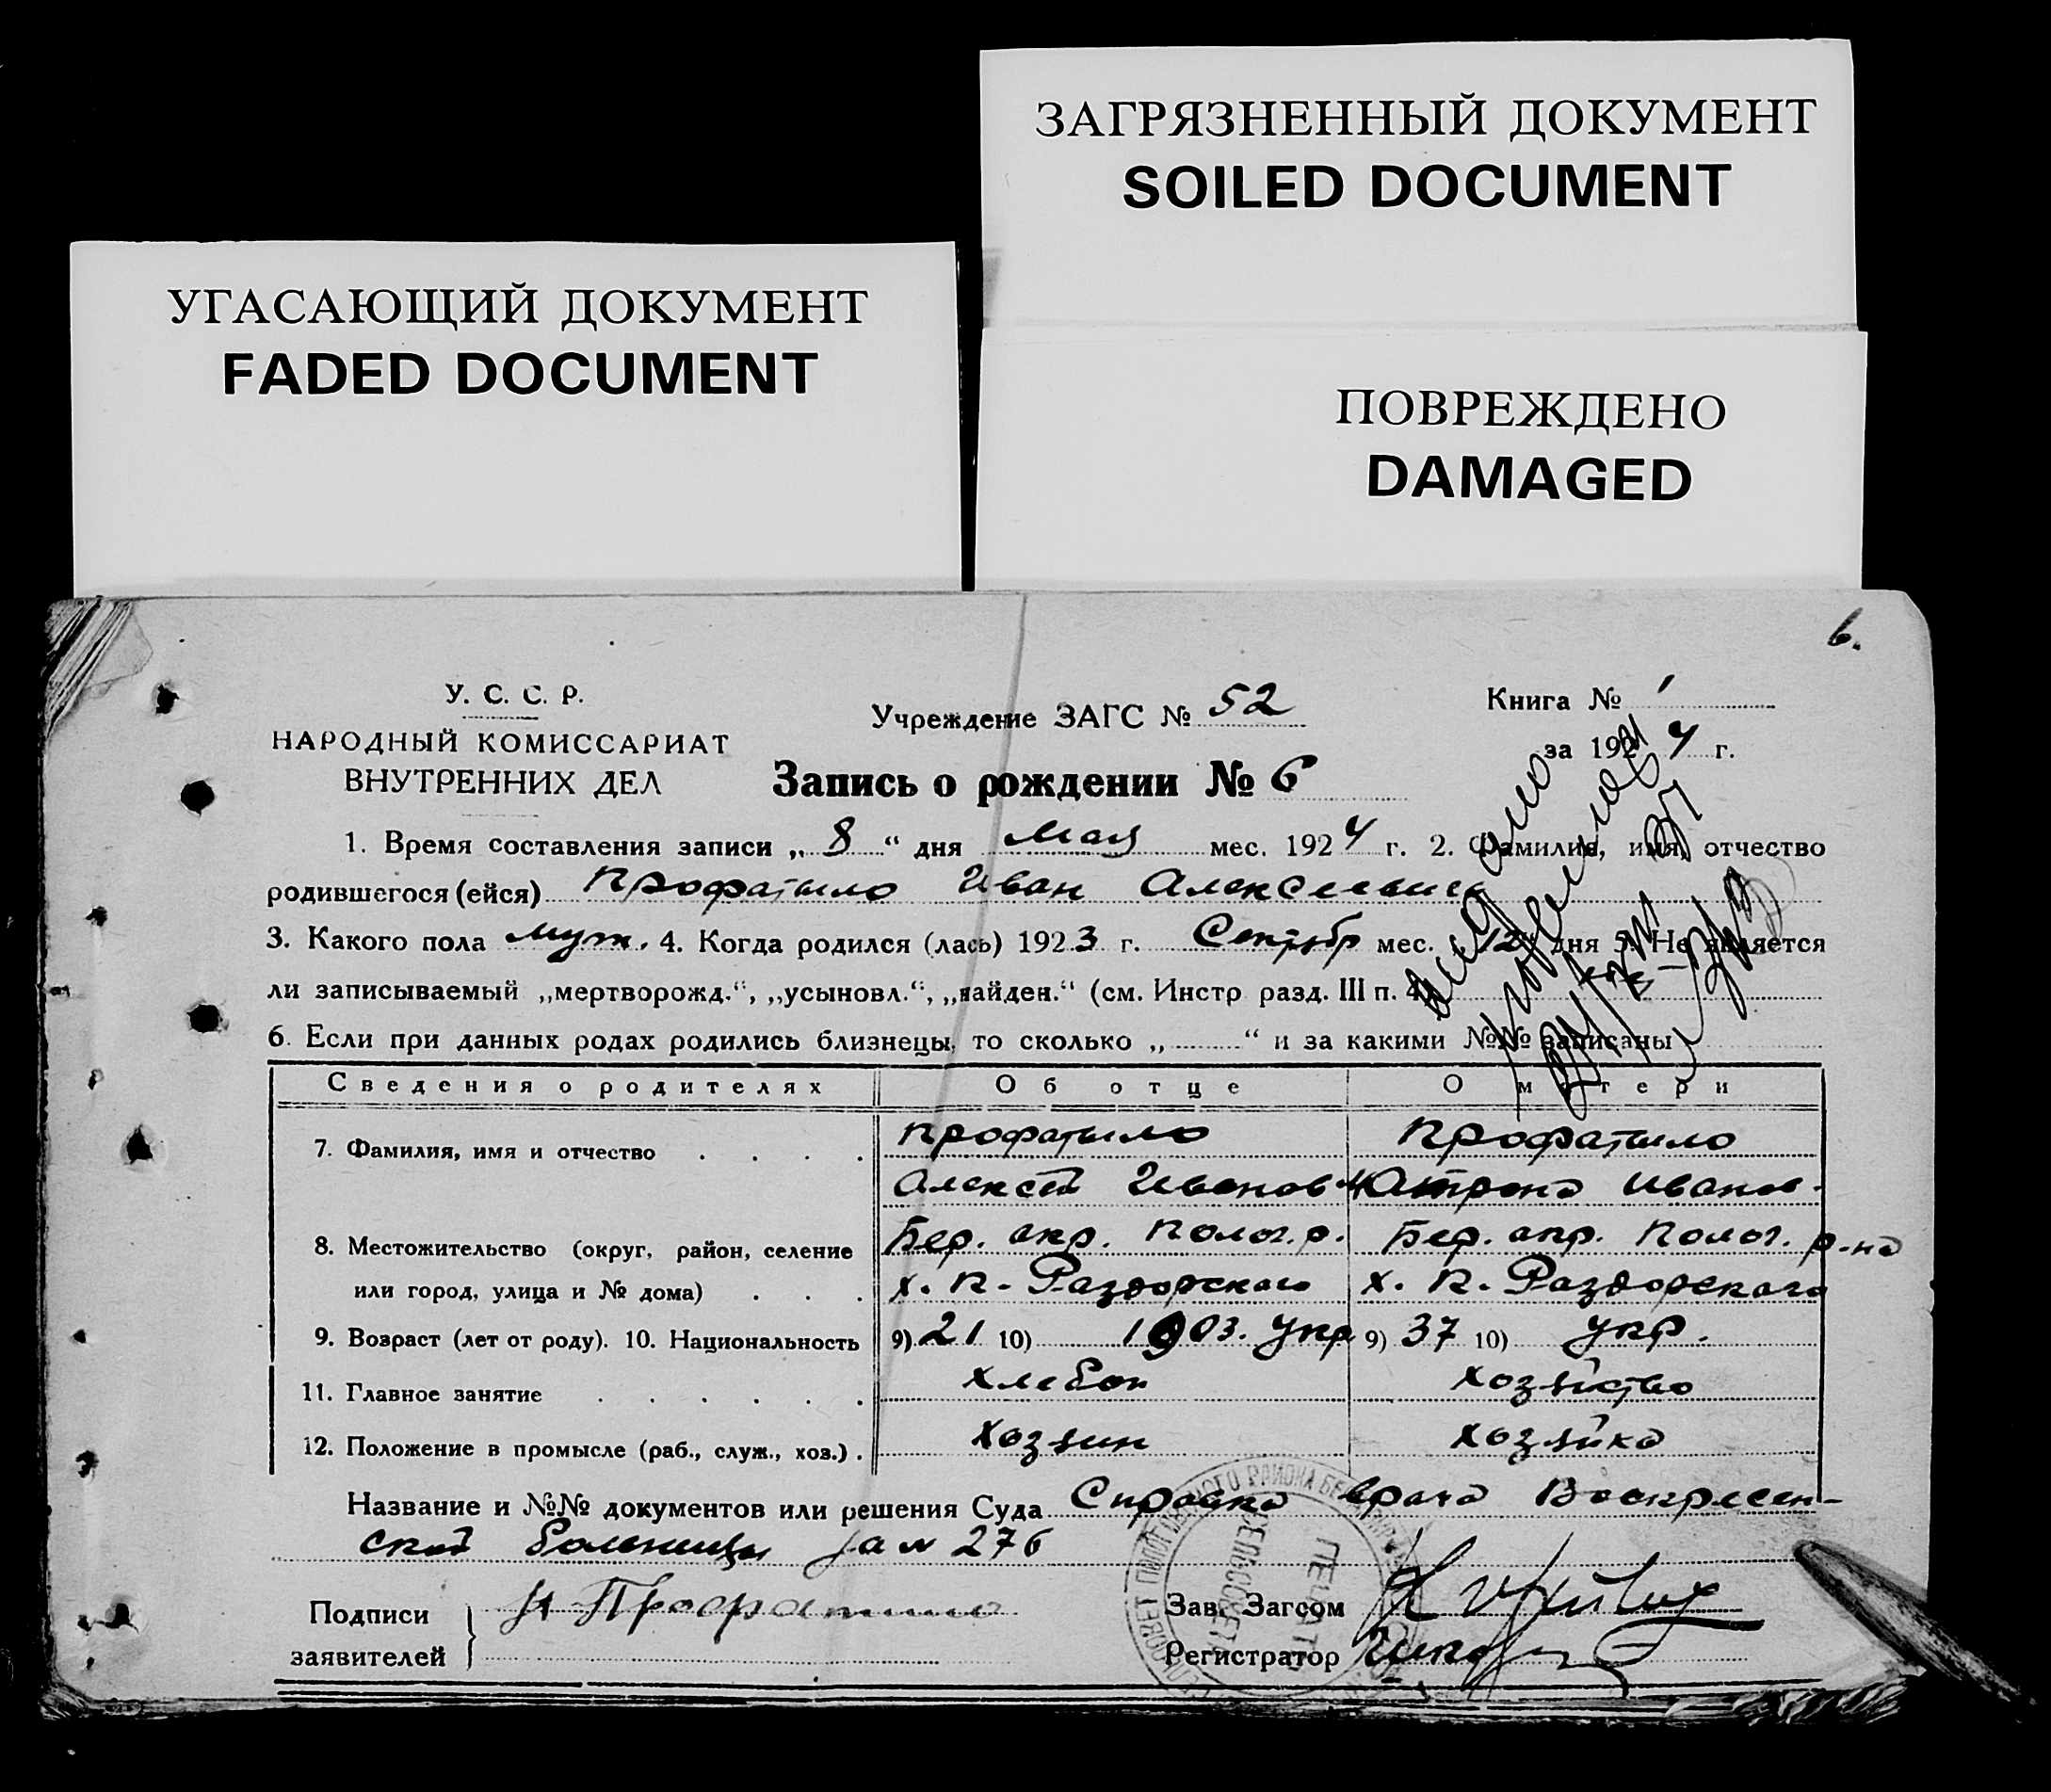 ЗАГРЯЗНЕННЫЙ ДОКУМЕНТ
SOILED DOCUMENT
УГАСАЮЩИЙ ДОКУМЕНТ
FADED DOCUMENT
ПОВРЕЖДЕНО
DAMAGED
6.
У. С. С. Р.
НАРОДНЫЙ КОМИССАРИАТ
ВНУТРЕННИХ ДЕЛ
Учреждение ЗАГС № 52
Книга № 1
за 1924 г.
Запись о рождении № 6
1. Время составления записи „ 8 “ дня Мая мес. 1924 г. 2. Фамилия, имя, отчество
родившегося (ейся) Профатыло Иван Алексеевич
3. Какого пола муж. 4. Когда родился (лась) 1923 г. Сентябр мес. „12“ дня 5. Не является
ли записываемый „мертворожд.“, „усыновл.“, „найден.“ (см. Инстр разд. III п. 4)
6. Если при данных родах родились близнецы, то сколько „ “ и за какими №№ записаны
Сведения о родителях Об отце О матери
7. Фамилия, имя и отчество Профатыло Профатыло
Алексей Иванов Иванов.
8. Местожительство (округ, район, селение Бер. окр. Полог. р. Бер. окр. Полог. р-на
или город, улица и № дома) х. К. Раздорского х. К. Раздорского
9. Возраст (лет от роду). 10. Национальность 9) 21 10) 1903. Укр 9) 37 10) Укр.
11. Главное занятие хлебоп хозяйство
12. Положение в промысле (раб., служ., хоз.) хозяин хозяйка
Название и №№ документов или решения Суда Справка врача Воскресен-
ской больницы за № 276
Подписи
заявителей
Профатило
Зав. Загсом
Регистратор
ПЕЧАТЬ
СЕЛЬСОВЕТА